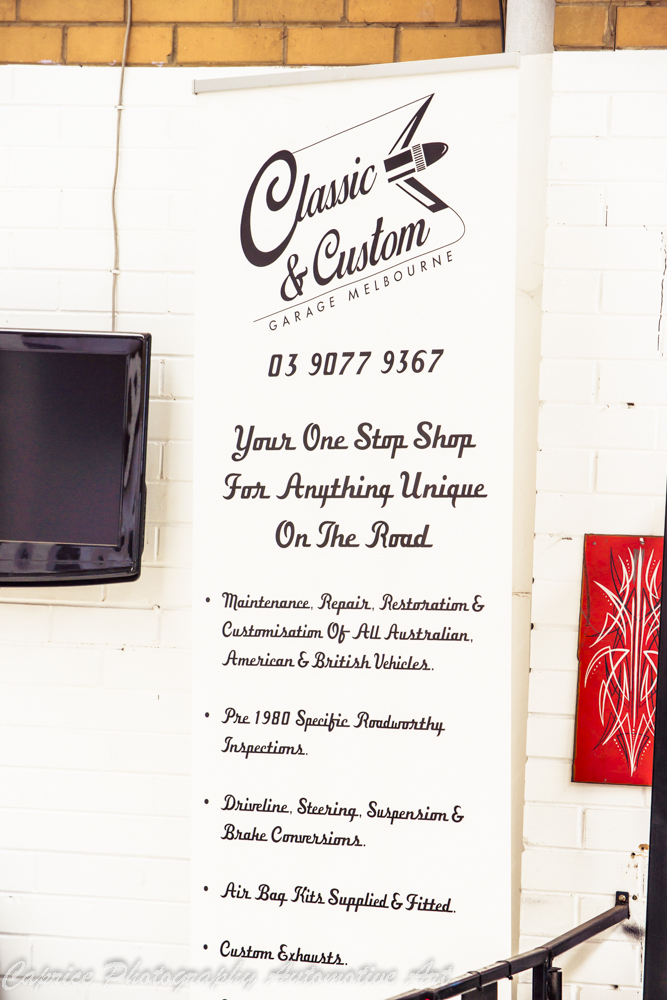 Classic
& Custom
GARAGE MELBOURNE
03 9077 9367
Your One Stop Shop
For Anything Unique
On The Road
• Maintenance, Repair, Restoration &
Customisation Of All Australian,
American & British Vehicles.
• Pre 1980 Specific Roadworthy
Inspections.
• Driveline, Steering, Suspension &
Brake Conversions.
• Air Bag Kits Supplied & Fitted.
• Custom Exhausts.
Caprice Photography Automotive Art